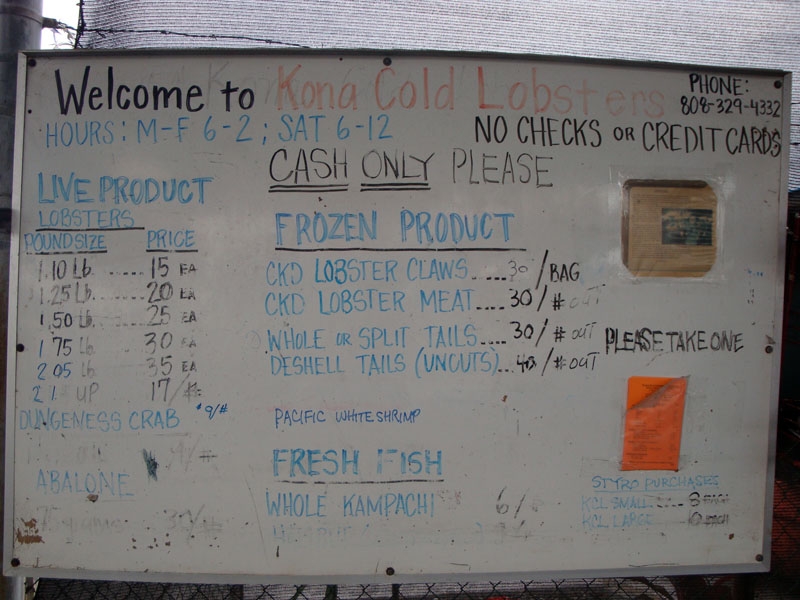 Welcome to Kona Cold Lobsters
PHONE:
808-329-4332
HOURS: M-F 6-2; SAT 6-12
NO CHECKS OR CREDIT CARDS
CASH ONLY PLEASE
LIVE PRODUCT
LOBSTERS
POUND SIZE PRICE
1.10 Lb...... 15 EA
1.25 Lb...... 20 EA
1.50 Lb..... 25 EA
1 75 Lb 30 EA
2.05 Lb 35 EA
UP 17/#
DUNGENESS CRAB 9/#
ABALONE
FROZEN PRODUCT
CKD LOBSTER CLAWS.....30/BAG
CKD LOBSTER MEAT....30/# OUT
WHOLE OR SPLIT TAILS....30/# OUT
DESHELL TAILS (UNCUTS)...40/# OUT
PACIFIC WHITE SHRIMP
FRESH FISH
WHOLE KAMPACHI 6/
PLEASE TAKE ONE
STYRO PURCHASES
KCL SMALL.... 8 EACH
KCL LARGE 10 EACH